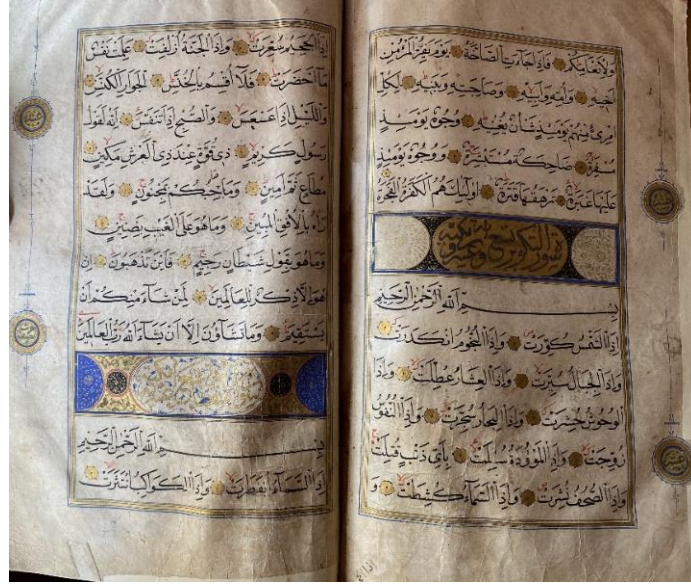 وَلِأَنْعَامِكُمْ فَإِذَا جَاءَتِ الصَّاخَّةُ يَوْمَ يَفِرُّ الْمَرْءُ مِنْ
أَخِيهِ وَأُمِّهِ وَأَبِيهِ وَصَاحِبَتِهِ وَبَنِيهِ لِكُلِّ
امْرِئٍ مِنْهُمْ يَوْمَئِذٍ شَأْنٌ يُغْنِيهِ وُجُوهٌ يَوْمَئِذٍ
مُسْفِرَةٌ ضَاحِكَةٌ مُسْتَبْشِرَةٌ وَوُجُوهٌ يَوْمَئِذٍ
عَلَيْهَا غَبَرَةٌ تَرْهَقُهَا قَتَرَةٌ أُولَئِكَ هُمُ الْكَفَرَةُ الْفَجَرَةُ
سورة التكوير تسع وعشرون مكية
بِسْمِ اللَّهِ الرَّحْمَنِ الرَّحِيمِ
إِذَا الشَّمْسُ كُوِّرَتْ وَإِذَا النُّجُومُ انْكَدَرَتْ
وَإِذَا الْجِبَالُ سُيِّرَتْ وَإِذَا الْعِشَارُ عُطِّلَتْ وَإِذَا
الْوُحُوشُ حُشِرَتْ وَإِذَا الْبِحَارُ سُجِّرَتْ وَإِذَا النُّفُوسُ
زُوِّجَتْ وَإِذَا الْمَوْءُودَةُ سُئِلَتْ بِأَيِّ ذَنْبٍ قُتِلَتْ
وَإِذَا الصُّحُفُ نُشِرَتْ وَإِذَا السَّمَاءُ كُشِطَتْ وَ
إِذَا الْجَحِيمُ سُعِّرَتْ وَإِذَا الْجَنَّةُ أُزْلِفَتْ عَلِمَتْ نَفْسٌ
مَا أَحْضَرَتْ فَلَا أُقْسِمُ بِالْخُنَّسِ الْجَوَارِ الْكُنَّسِ
وَاللَّيْلِ إِذَا عَسْعَسَ وَالصُّبْحِ إِذَا تَنَفَّسَ إِنَّهُ لَقَوْلُ
رَسُولٍ كَرِيمٍ ذِي قُوَّةٍ عِنْدَ ذِي الْعَرْشِ مَكِينٍ
مُطَاعٍ ثَمَّ أَمِينٍ وَمَا صَاحِبُكُمْ بِمَجْنُونٍ وَلَقَدْ
رَآهُ بِالْأُفُقِ الْمُبِينِ وَمَا هُوَ عَلَى الْغَيْبِ بِضَنِينٍ
وَمَا هُوَ بِقَوْلِ شَيْطَانٍ رَجِيمٍ فَأَيْنَ تَذْهَبُونَ إِنْ
هُوَ إِلَّا ذِكْرٌ لِلْعَالَمِينَ لِمَنْ شَاءَ مِنْكُمْ أَنْ
يَسْتَقِيمَ وَمَا تَشَاءُونَ إِلَّا أَنْ يَشَاءَ اللَّهُ رَبُّ الْعَالَمِينَ
بِسْمِ اللَّهِ الرَّحْمَنِ الرَّحِيمِ
إِذَا السَّمَاءُ انْفَطَرَتْ وَإِذَا الْكَوَاكِبُ انْتَثَرَتْ